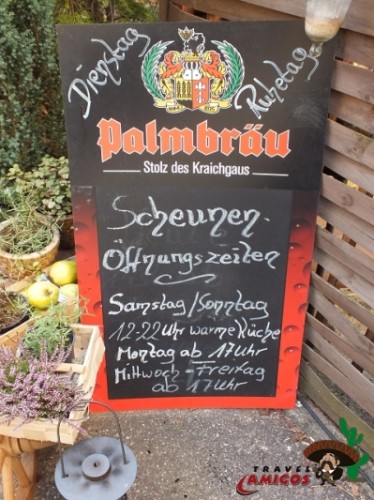 Dienstag Ruhetag
Palmbräu
Stolz des Kraichgaus
Scheunen-
Öffnungszeiten
Samstag/Sonntag
12-22 Uhr warme Küche
Montag ab 17 Uhr
Mittwoch - Freitag
ab 17 Uhr
TRAVEL
AMIGOS